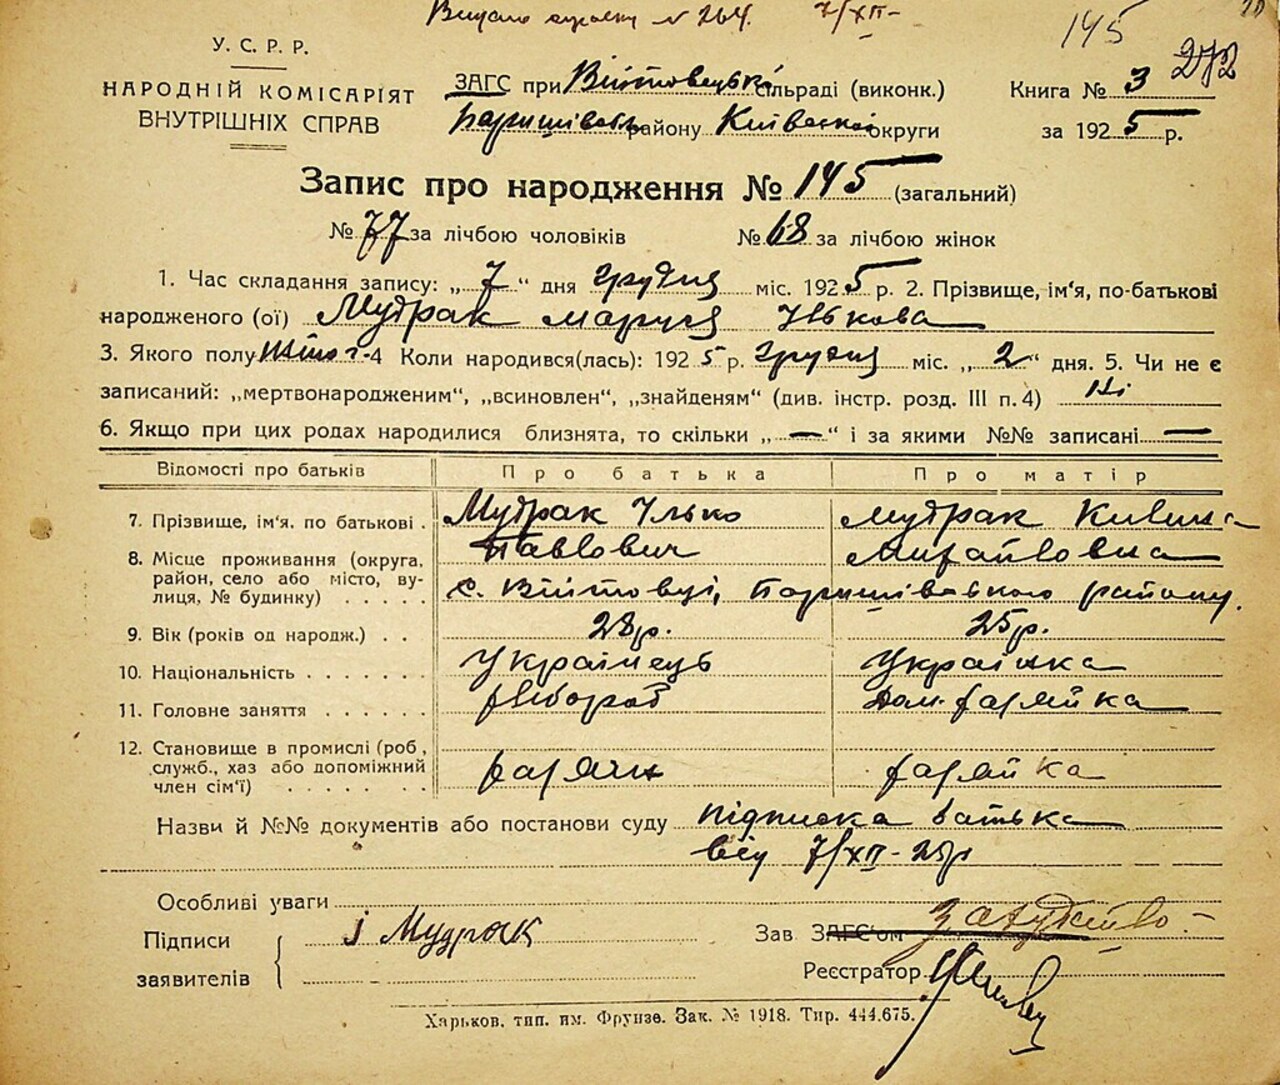 Видано виписку № 264. 7/XII-
145
272
У. С. Р. Р.
НАРОДНІЙ КОМІСАРІЯТ
ВНУТРІШНІХ СПРАВ
ЗАГС при Війтовецькі сільраді (виконк.)
Баришівськ району Київської округи
Книга № 3
за 1925 р.
Запис про народження № 145 (загальний)
№ 77 за лічбою чоловіків № 68 за лічбою жінок
1. Час складання запису: „ 7 “ дня грудня міс. 1925 р. 2. Прізвище, ім'я, по-батькові
народженого (ої) Мудрак Маруся Ількова
3. Якого полу жіноч. 4 Коли народився(лась): 1925 р. грудня міс. „ 2 “ дня. 5. Чи не є
записаний: „мертвонародженим“, „всиновлен“, „знайденям“ (див. інстр. розд. III п. 4) Ні
6. Якщо при цих родах народилися близнята, то скільки „ — “ і за якими №№ записані —
Відомості про батьків Про батька Про матір
7. Прізвище, ім'я. по батькові . Мудрак Ілько Мудрак
Павлович Михайловна
8. Місце проживання (округа,
район, село або місто, ву-
лиця, № будинку) . . . . . с. Війтовці, Баришівського району.
9. Вік (років од народж.) . . 28 р. 25 р.
10. Національність . . . . . . . Українець Українка
11. Головне заняття . . . . . . хлібороб Дом. хазяйка
12. Становище в промислі (роб,
служб., хаз або допоміжний
член сім'ї) . . . . . . хазяин хазяйка
Назви й №№ документів або постанови суду підписка батька
від 7/XII-25р
Особливі уваги
Підписи
заявителів
І Мудрак
Зав ЗАГС'ом
Реєстратор
Харьков. тип. им. Фрунзе. Зак. № 1918. Тир. 444.675.